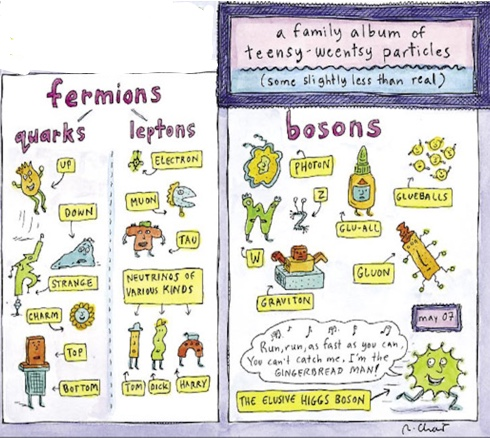 a family album of
teensy-weentsy particles
(some slightly less than real)
fermions
quarks
leptons
UP
DOWN
STRANGE
CHARM
TOP
BOTTOM
ELECTRON
MUON
TAU
NEUTRINOS OF
VARIOUS KINDS
TOM
DICK
HARRY
bosons
PHOTON
Z
W
GLU-ALL
GLUEBALLS
GRAVITON
GLUON
may 07
Run, run, as fast as you can,
You can't catch me, I'm the
GINGERBREAD MAN!
THE ELUSIVE HIGGS BOSON
r. Chast